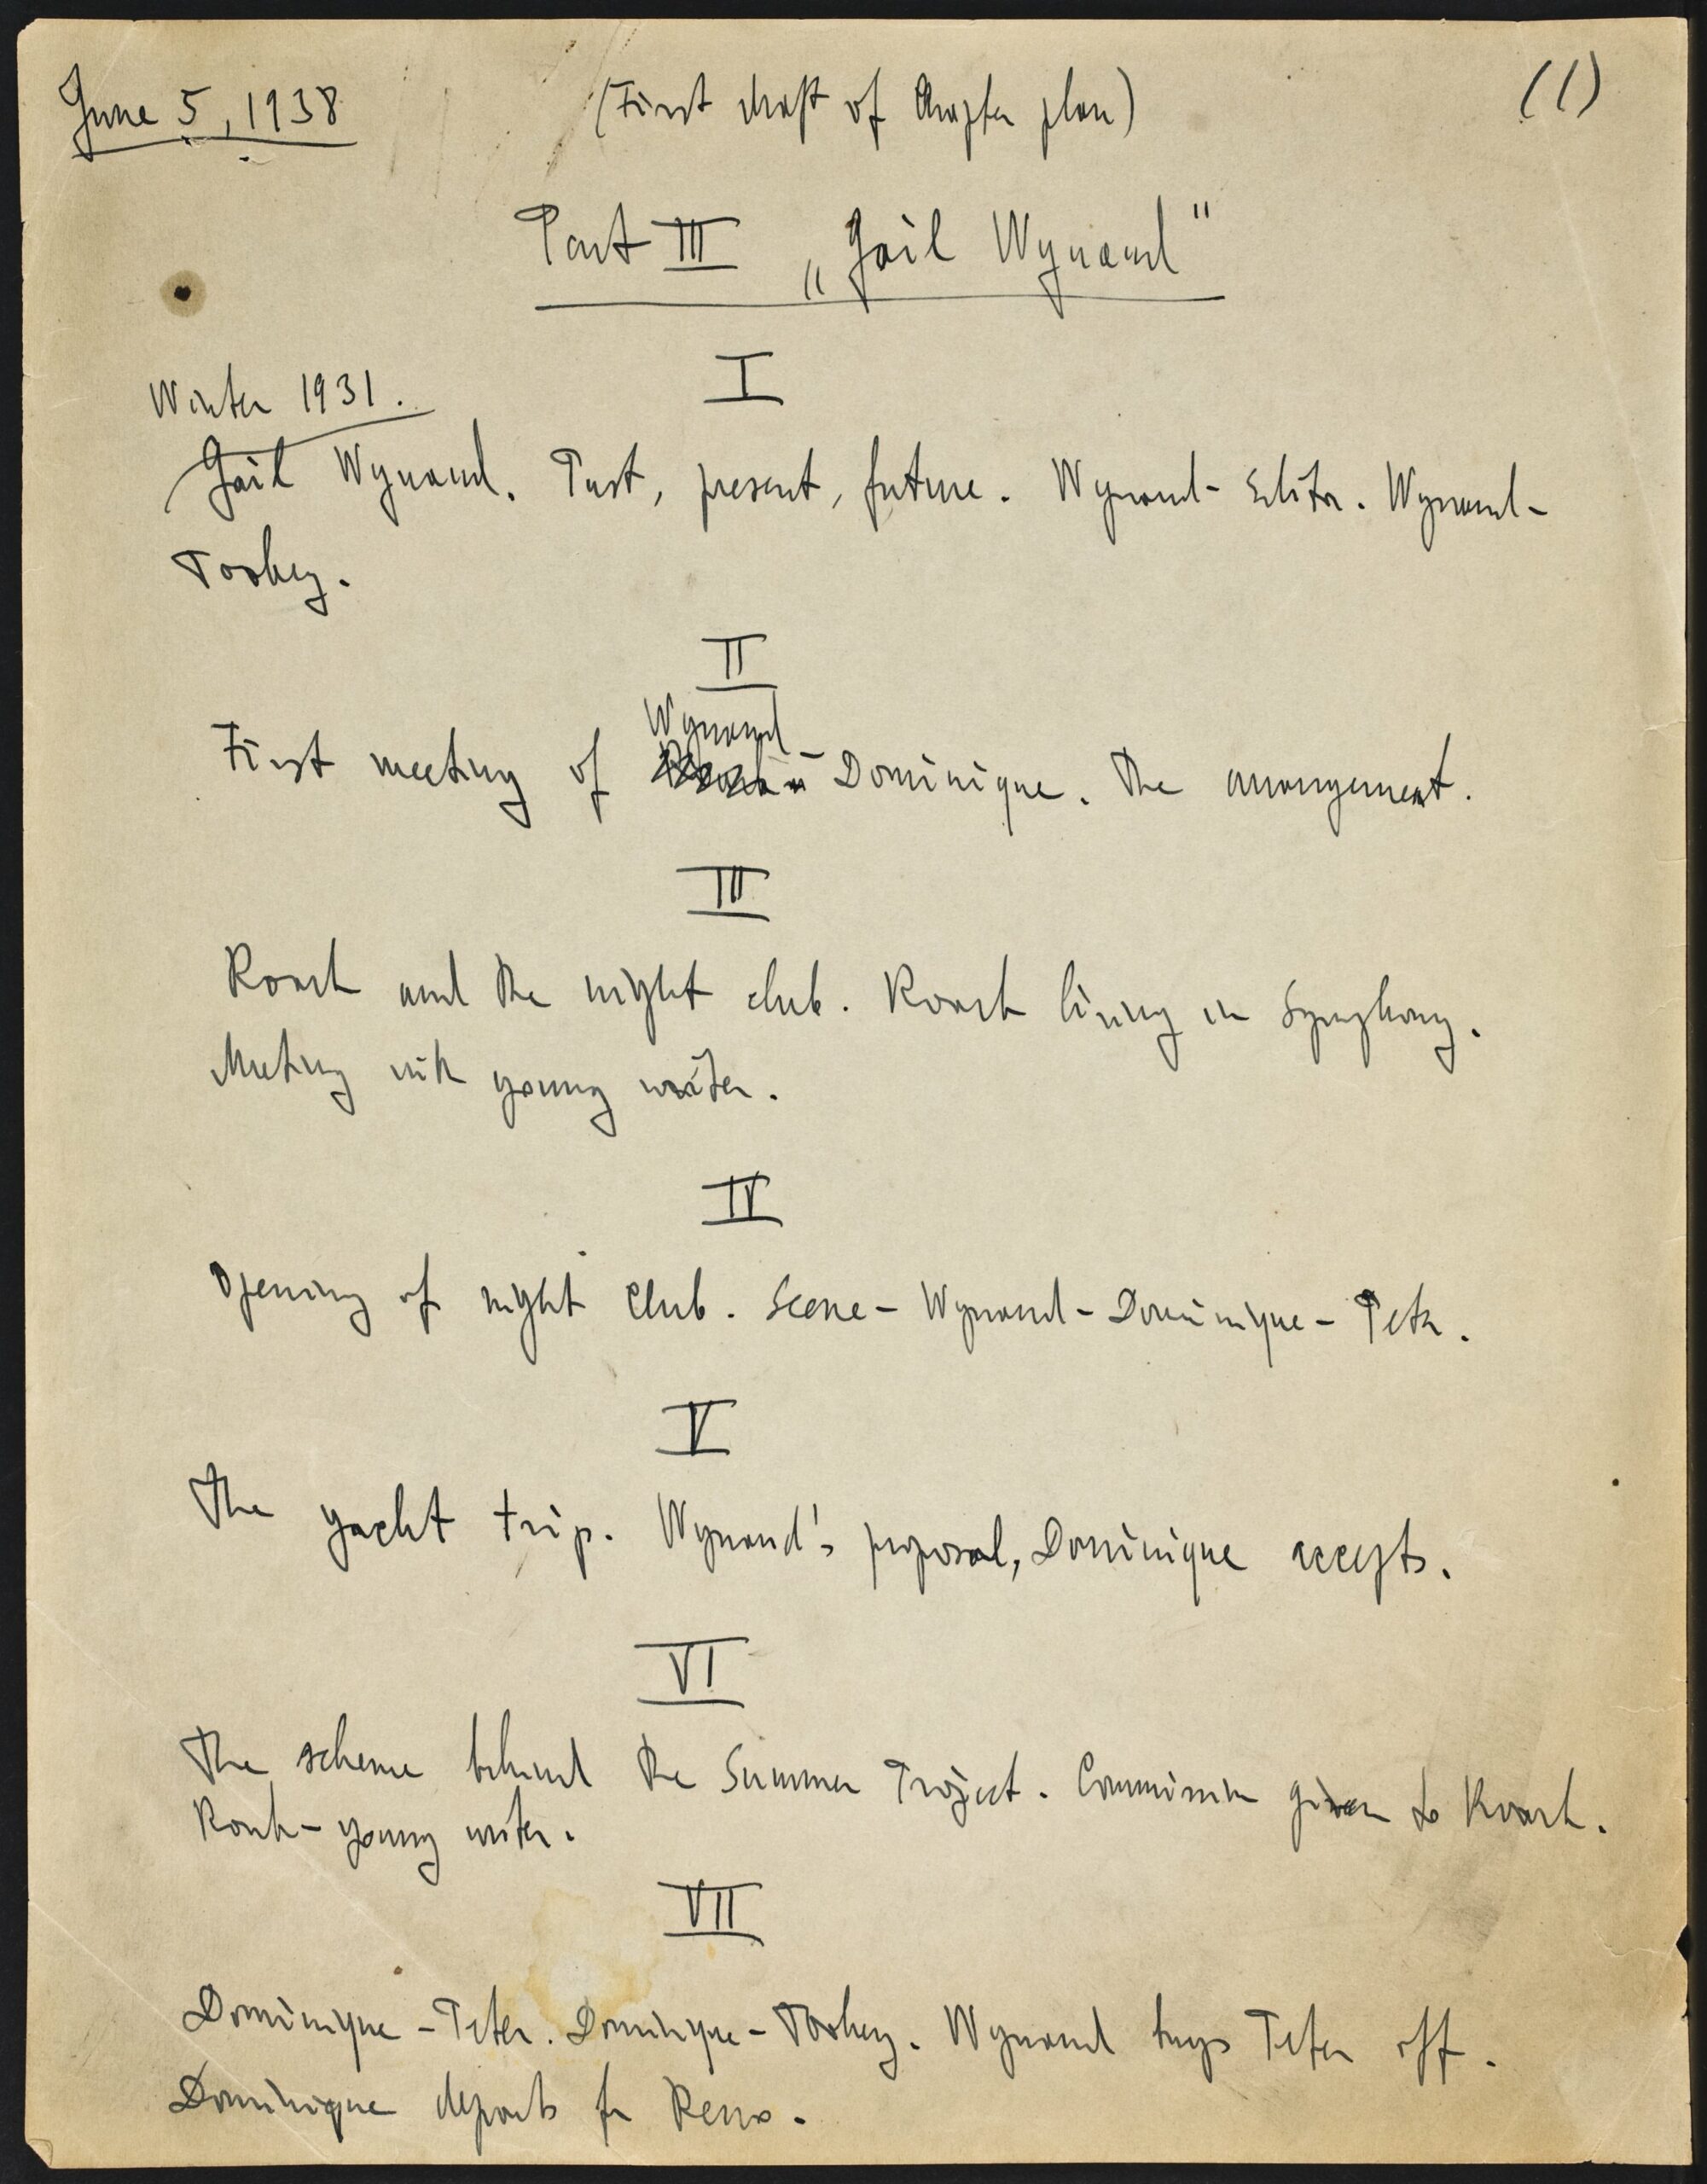 June 5, 1938
(First draft of Chapter plan)
(1)
Part III „Gail Wynand"
I
Winter 1931.
Gail Wynand. Past, present, future. Wynand - Editor. Wynand -
Toohey.
II
Wynand
First meeting of - Dominique. The arrangement.
III
Roark and the night club. Roark living in Symphony.
Meeting with young writer.
IV
Opening of night club. Scene - Wynand - Dominique - Peter.
V
The yacht trip. Wynand's proposal, Dominique accepts.
VI
The scheme behind the Summer Project. Commission given to Roark.
Roark - young writer.
VII
Dominique - Peter. Dominique - Toohey. Wynand buys Peter off.
Dominique departs for Reno.